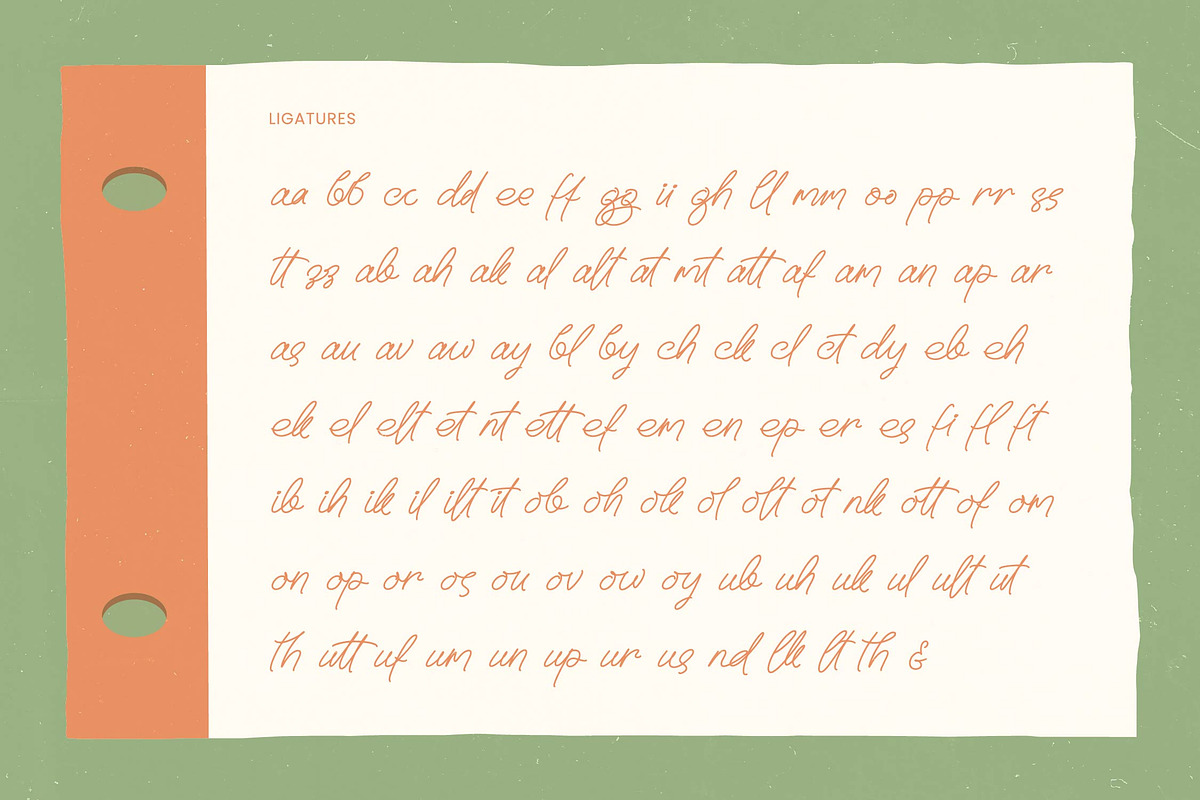 LIGATURES
aa bb cc dd ee ff gg ii gh ll mm oo pp rr ss
tt zz ab ah ak al alt at mt att af am an ap ar
as au av aw ay bl by ch ck cl ct dy eb eh
ek el elt et nt ett ef em en ep er es fi fl ft
ib ih ik il ilt it ob oh ok ol olt ot nk ott of om
on op or os ou ov ow oy ub uh uk ul ult ut
th utt uf um un up ur us nd lk lt th &